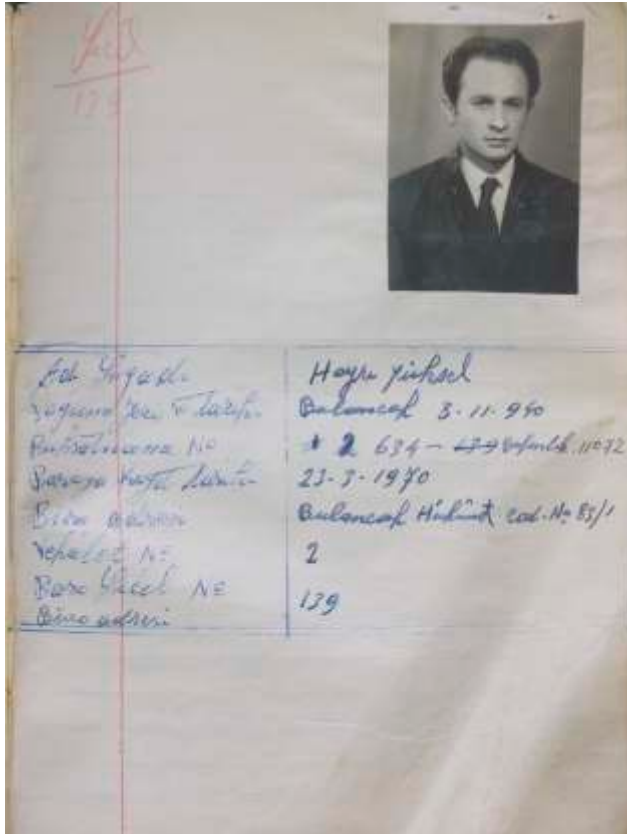 139
Adı Soyadı Hayri Yüksel
Bulancak 3-11-940
Ruhsatname No 2 634 - 
Baroya kayıt tarihi 23-3-1970
Büro adresi Bulancak Hükümet cad. No 83/1
No 2
Baro Sicil No 139
Büro adresi